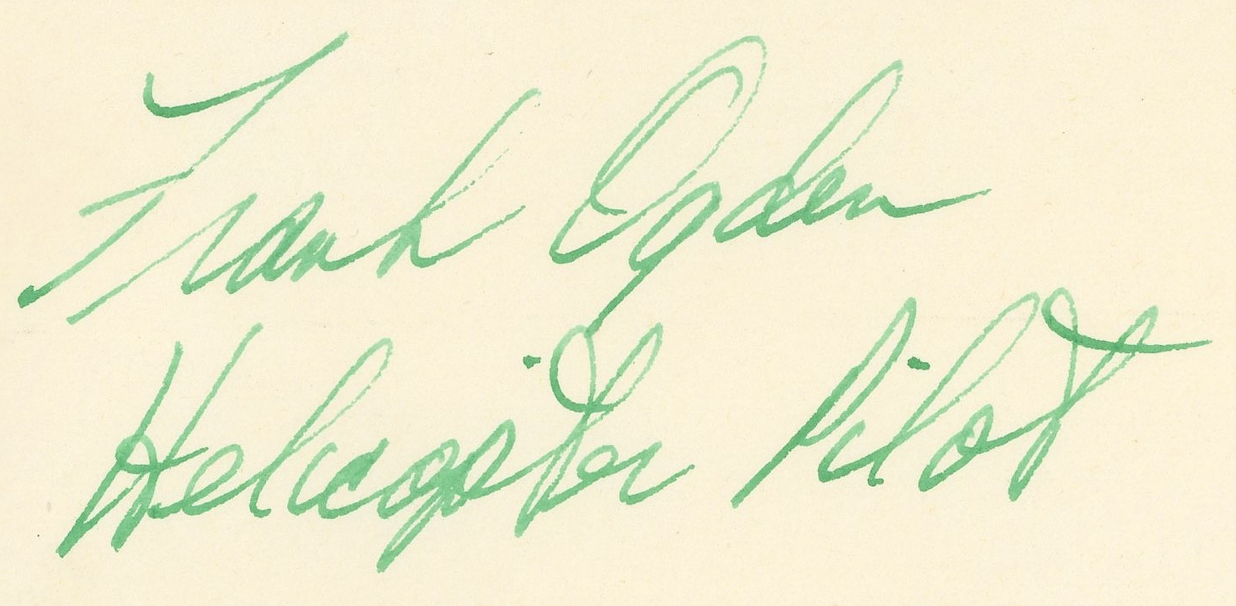 Frank Ogden
Helicopter Pilot